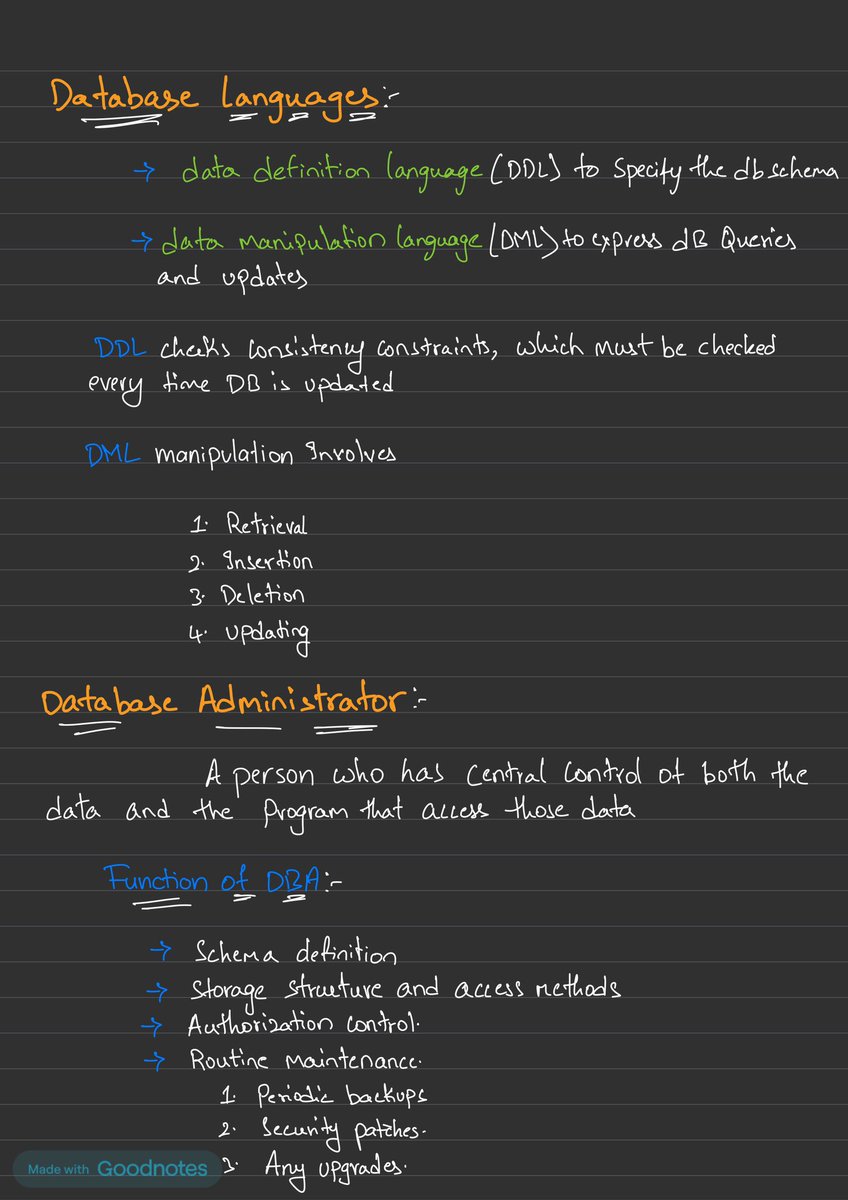 Database Languages:-
→ data definition language (DDL) to Specify the db schema
→ data manipulation language (DML) to express dB Queries
and updates
DDL checks consistency constraints, which must be checked
every time DB is updated
DML manipulation Involves
1. Retrieval
2. Insertion
3. Deletion
4. updating
Database Administrator:-
A person who has central control of both the
data and the program that access those data
Function of DBA:-
→ Schema definition
→ Storage structure and access methods
→ Authorization control.
→ Routine maintenance.
1. Periodic backups
2. Security patches.
3. Any upgrades.
Made with Goodnotes